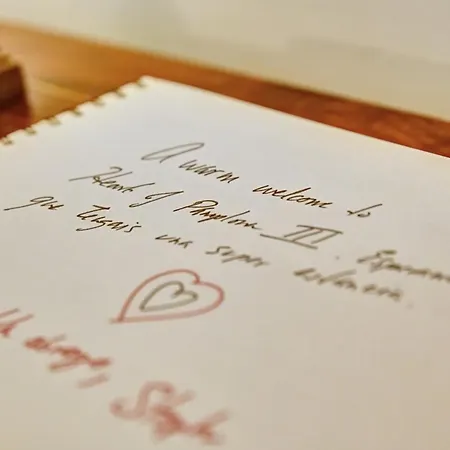 A warm welcome to
Heart of Pamplona III. Esperamos
que tengais una super estancia.